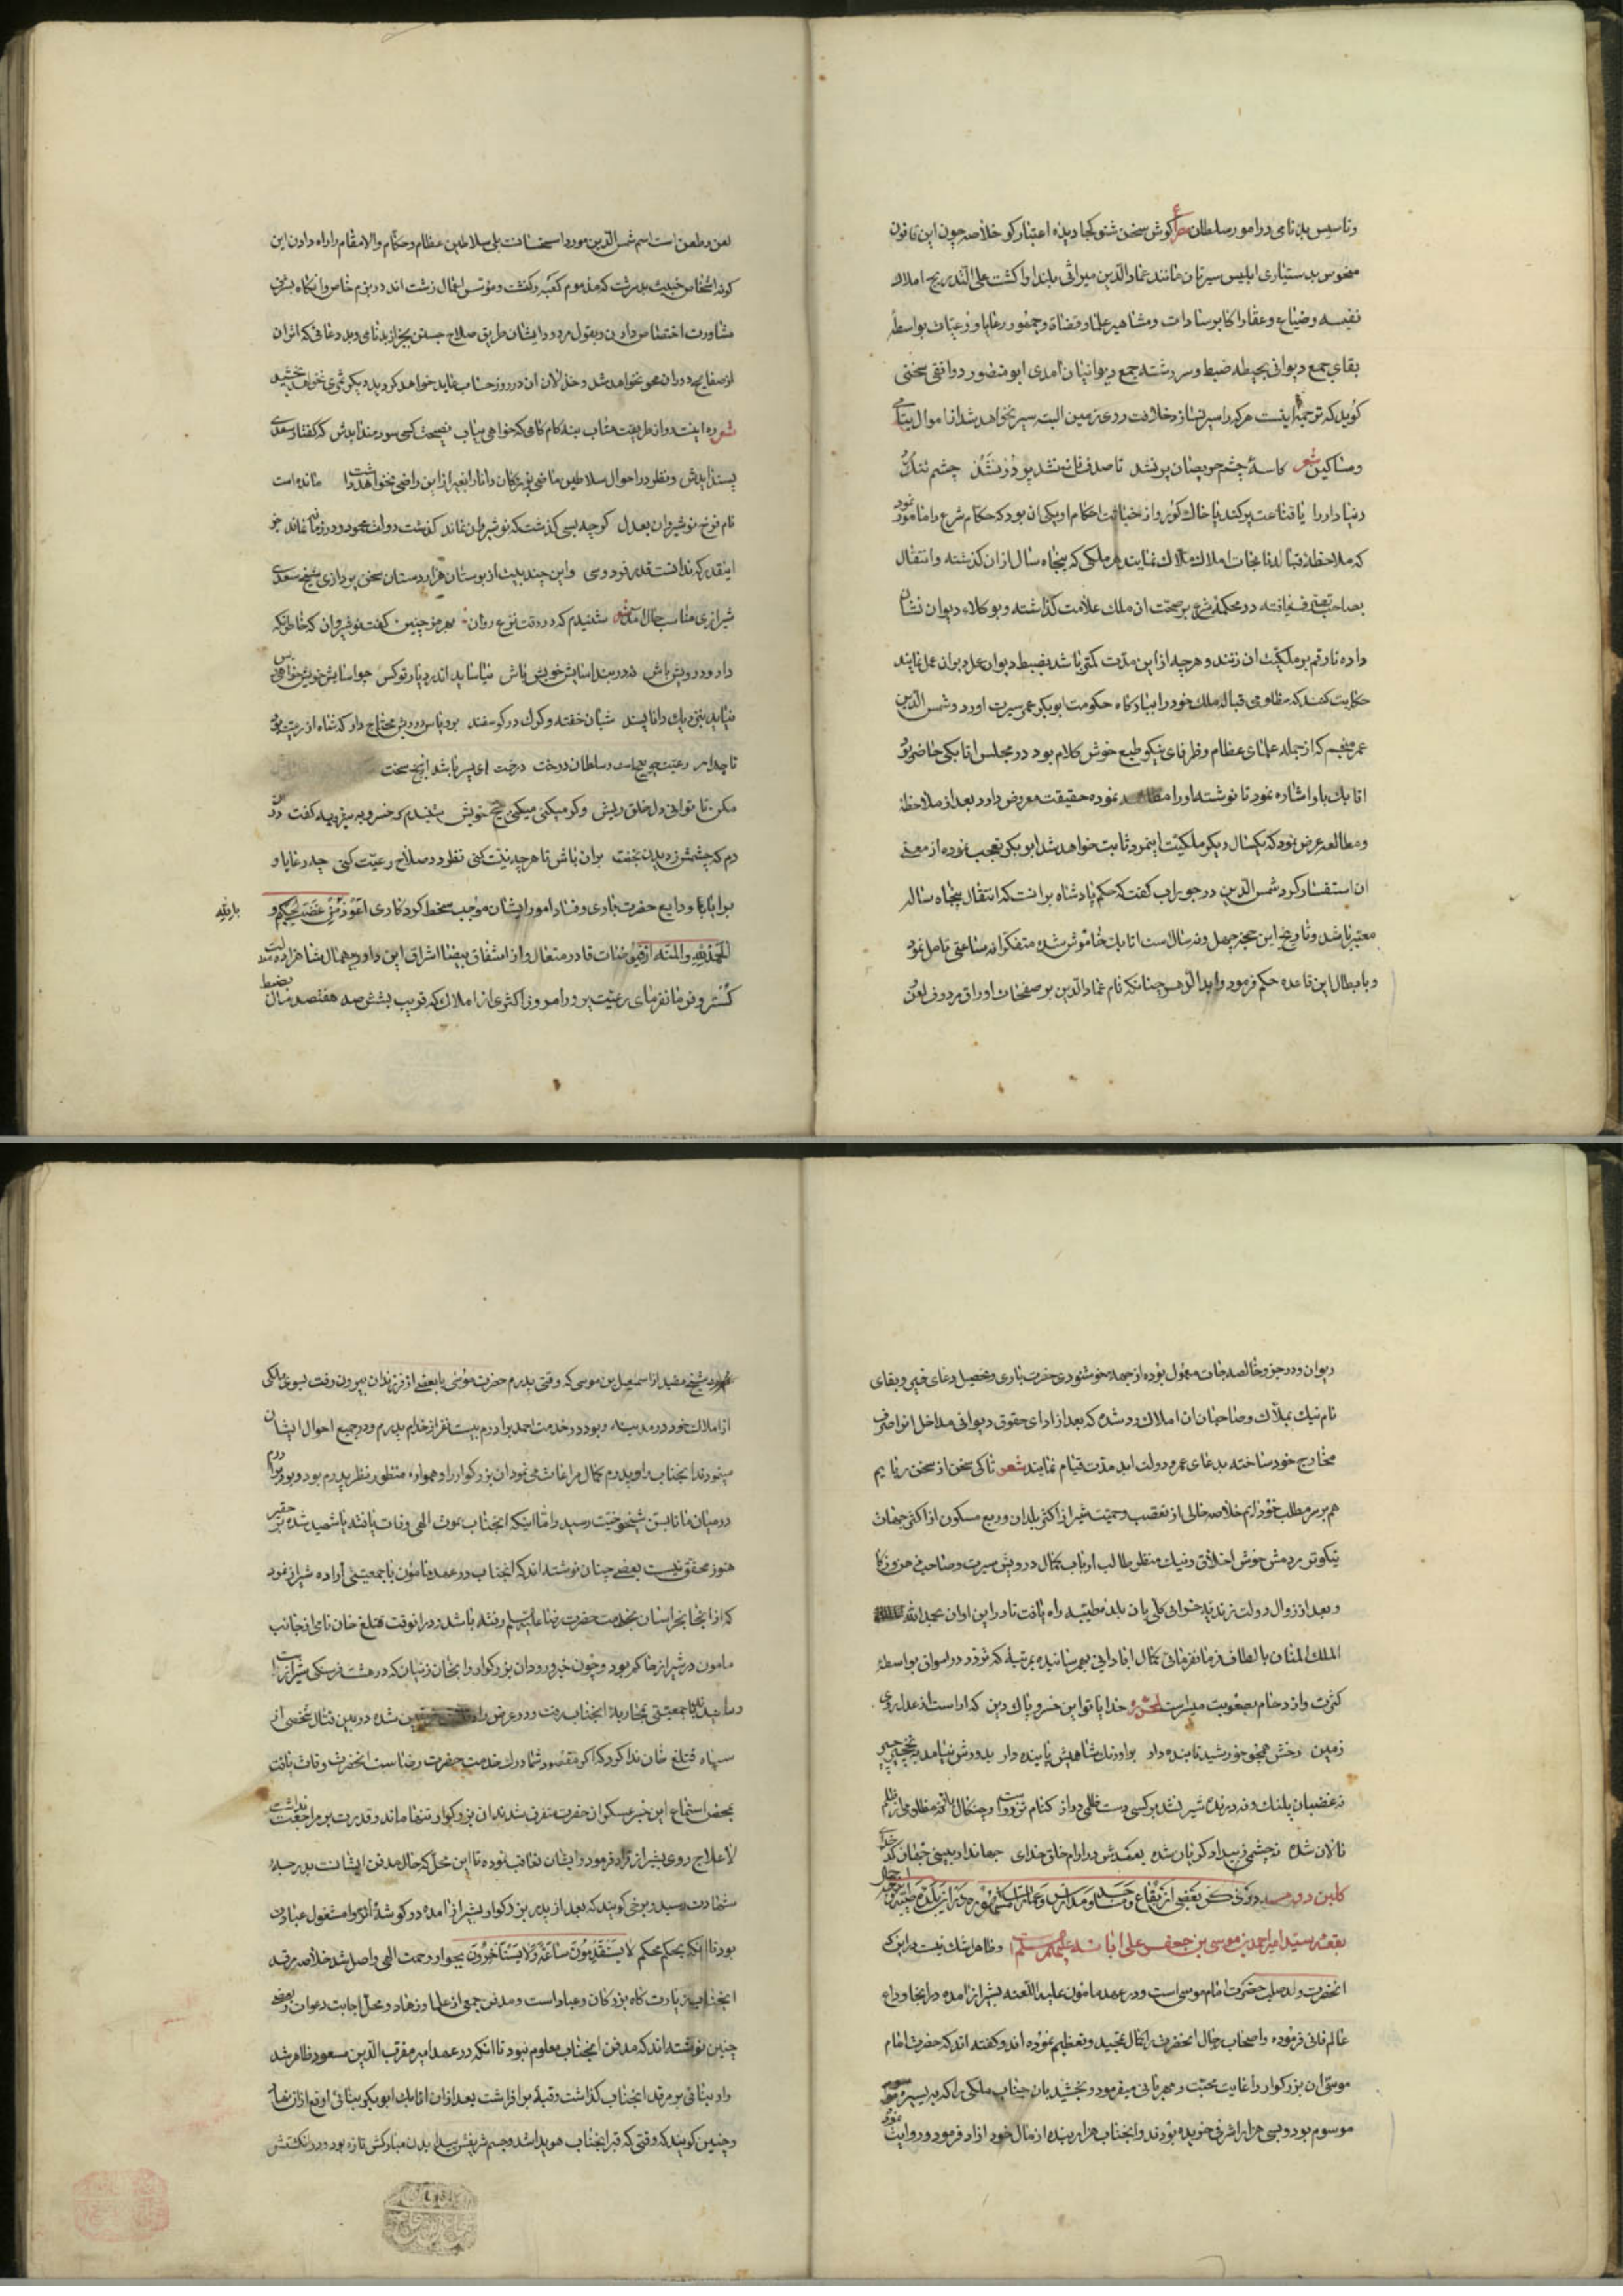 وتاسیس بدنامی در امور سلطان مصرع کوش سخن شنو کجا دیده اعتبار کو خلاصه چون این قانون
منحوس بدستیاری ابلیس سیرتان مانند عماد الدین میراثی بلند اوا کشت علی التدریج املاک
نفیسه وضیاع وعقار اکابر سادات ومشاهیر علما وقضاة وجمهور رعایا ورعیات بواسطهٔ
بقای جمع دیوانی بحیطه ضبط وسررشته جمع دیوانیان امدی ابو منصور دوانقی سخنی
کوید که ترجمهٔ اینست هرکه را سیر نسازد خلافت روی زمین البته سیر نخواهد شد از اموال یتامی
ومساکین شعر کاسهٔ چشم حریصان پر نشد تا صدف قانع نشد پر در نشد چشم تنک
دنیادار را یا قناعت پر کند یا خاک کور واز خیانت احکام او یکی ان بود که حکام شرع را مامور نمود
که ملاحظه قبالهٔ باغات املاک ملاک نمایند هر ملکی که پنجاه سال از ان کذشته وانتقال
بصاحب نیافته در محکمهٔ شرع بر صحت ان ملک علامت کذاشته وبوکلاء دیوان نشان
داده تا رقم بر ملکیت ان زنند وهرچه از این مدت کمتر باشد بضبط دیوان عمل نمایند
حکایت کنند که مظلومی قباله ملک خود را ببارکاه حکومت ابوبکر عمر سیرت اورد وشمس الدین
عمر منجم که از جمله علمای عظام وظرفای نیکو طبع خوش کلام بود در مجلس اتابکی حاضر بود
اتابک باو اشاره نمود تا نوشته او را مطالعه نموده حقیقت معروض دارد بعد از ملاحظهٔ
ومطالعه عرض نمود که یکسال دیکر ملکیت اینمرد ثابت خواهد شد ابوبکر تعجب نموده از معنی
ان استفسار کرد شمس الدین در جواب کفت که حکم پادشاه بر انست که انتقال پنجاه ساله
معتبر باشد وتاریخ این حجة چهل ونه سال است اتابک خاموش شده متفکرانه ساعتی تامل نمود
وبابطال این قاعده حکم فرمود وابد الدهر چنانکه نام عماد الدین بر صفحات اوراق مردوف لعن
لعن وطعن است اسم شمس الدین مورد استحسانست بلی سلاطین عظام وحکام والامقام را راه دادن این
کونه اشخاص خبیث بدسرشت که مذموم کعبه وکنشت وموسس اعمال زشت اند در بزم خاص وانکاه بشرف
مشاورت اختصاص دادن وبقول مردود ایشان طریق صلاح جستن بجز از بدنامی وبد دعائی که اثر ان
از صفایح دوران محو نخواهد شد وخذلان ان در روز حساب عاید خواهد کردید دیکر ثمری نخواهد بخشید
شعر ره اینست رو از طریقت متاب بنه کام کامی که خواهی بیاب نصیحت کسی سودمند ایدش که کفتار سعدی
پسند ایدش ونظر در احوال سلاطین ماضی بزرکان دانا را بغیر از این راضی نخواهد داشت مانده است
نام فرخ نوشیروان بعدل کرچه بسی کذشت که نوشیروان نماند کذشت دولت محمود ودر زمانه نماند جز
اینقدر که ندانست قدر فردوسی واین چند بیت از بوستان هزار دستان سخن پردازی شیخ سعدی
شیرازی مناسب حال امد شعر شنیدم که در وقت نزع روان بهرمز چنین کفت نوشیروان که خاطر نکه
دار درویش باش نه در بند اسایش خویش باش نیاساید اندر دیار تو کس چو اسایش خویش خواهی وبس
نیاید بنزدیک دانا پسند شبان خفته وکرک در کوسفند برو پاس درویش محتاج دار که شاه از رعیت بود
تاجدار رعیت چو بیخست وسلطان درخت درخت ای پسر باشد از بیخ سخت
مکن تا توانی دل خلق ریش وکر میکنی میکنی بیخ خویش شنیدم که خسرو بشیرویه کفت در ان
دم که چشمش ز دیدن بخفت بران باش تا هرچه نیت کنی نظر در صلاح رعیت کنی چه رعایا و
برایا ودایع حضرت باری وفساد امور ایشان موجب سخط کردکاری اعوذ من غضب الحکیم و
بالله
الحمد لله والمنه از فیوضات قادر متعال واز اشفاق بیضا اشراق این داور بیهمال شاهزاده عدالت
کستر وفرمانفرمای رعیت پرور امروز اکثری از املاک که قریب بششصد هفتصد سال بضبط
دیوان ودر جزو خالصه جات معمول بوده از جمله خوشنودی حضرت باری وتحصیل دعای خیر وبقای
نام نیک بملاک وصاحبان ان املاک رد شده که بعد از ادای حقوق دیوانی مداخل انرا صرف
مخارج خود ساخته بدعای عمر ودولت ابد مدت قیام نمایند شعر تا کی سخن از سخن ربایم
هم بر سر مطلب خود ایم خلاصه خالی از تعصب وحمیت شیراز از اکثر بلدان وربع مسکون از اکثر جهات
نیکوتر مردمش خوش اخلاق ونیک منظر طالب ارباب کمال درویش سیرت وصاحب
وبعد از زوال دولت زندیه خرابی کلی بان بلده طیبه راه یافت تا در این اوان بحمد الله
الملک المنان بالطاف فرمانفرمائی کمال ابادانی بهم رسانیده بمرتبهٔ که تردد در اسواق بواسطهٔ
کثرت وازدحام بصعوبت میسر است لمحرره خدایا تو این خسرو پاک دین که اراست از عدل روی
زمین رخش همچو خورشید تابنده دار بر اورنک شاهیش پاینده دار
نه غضبان پلنک ونه درنده شیر نشد بر کسی دست ظلمی دراز نه مظلومی از ظلم
نالان شده نه چشمی ز بیداد کریان شده بعهدش در ارام خلق خدای
کلبن دویم در ذکر بعضی از بقاع ومساجد ومدارس وعمارات مشهوره شیراز
بقعه سید امیر احمد بن موسی بن جعفر علی ابائه علیهم السلام وظاهرا شک نیست در این که
انحضرت ولد صلب حضرت امام موسی است ودر عهد مامون علیه اللعنه بشیراز امده در اینجا وداع
عالم فانی فرموده واصحاب رجال انحضرت را کمال تمجید وتعظیم نموده اند وکفته اند که حضرت امام
موسی ان بزرکوار را غایت محبت ومهربانی میفرمود وبخشید بان جناب ملکی را که بیسیره
موسوم بود وبسی هزار اشرفی خریده بودند وانجناب هزار بنده از مال خود ازاد فرمود وروایت نمود
شیخ مفید از اسمعیل بن موسی که وقتی پدرم حضرت موسی با بعضی از فرزندان بیرون رفت بسوی ملکی
از املاک خود در مدینه وبود در خدمت احمد برادرم بیست نفر از خدام پدرم ودر جمیع احوال ایشان
مینمودند انجناب را وپدرم کمال مراعات می نمود ان بزرکوار را وهمواره منظور نظر پدرم بود
در میان ما تا بسن شیخوخیت رسید واما اینکه انجناب بموت الهی وفات یافته یا شهید شده بر حقیر
هنوز محقق نیست بعضی چنان نوشته اند که انجناب در عهد مامون با جمعیتی اراده شیراز نمود
که از انجا بخراسان بخدمت حضرت رضا علیه السلم رفته باشد ودر انوقت قتلغ خان نامی از جانب
مامون در شیراز حاکم بود وچون خبر ورود ان بزرکوار را بخان زنیان که در هشت فرسنکی شیراز است
شنید با جمعیتی بمحاربهٔ انجناب رفت ودر عرض راه شده در بین قتال شخصی از
سپاه قتلغ خان ندا کرد که اکر مقصود شما درک خدمت حضرت رضا است انحضرت وفات یافت
بمحض استماع این خبر عسکر ان حضرت متفرق شدند ان بزرکوار تنها ماند وقدرت بر مراجعت نداشت
لاعلاج روی بشیراز فرمود وایشان تعاقب نموده تا این محل که حال مدفن ایشانست بدرجهٔ
شهادت رسید وبرخی کویند که بعد از پدر بزرکوار بشیراز امده در کوشهٔ انزوا مشغول عبادت
بود تا انکه بحکم محکم لا یستقدمون ساعة ولا یستاخرون بجوار رحمت الهی واصل شد خلاصه مرقد
انجناب زیارت کاه بزرکان وعباد است ومدفن جمعی از علما وزهاد ومحل اجابت دعوات وبعضی
چنین نوشته اند که مدفن انجناب معلوم نبود تا انکه در عهد امیر مقرب الدین مسعود ظاهر شد
واو بنائی بر مرقد انجناب کذاشت وقبهٔ بر افراشت بعد از ان اتابک ابوبکر بنائی ارفع از ان نهاد
وچنین کویند که وقتی که قبر انجناب هویدا شد وجسم شریفش پیدا بدن مبارکش تازه بود ودر انکشتش